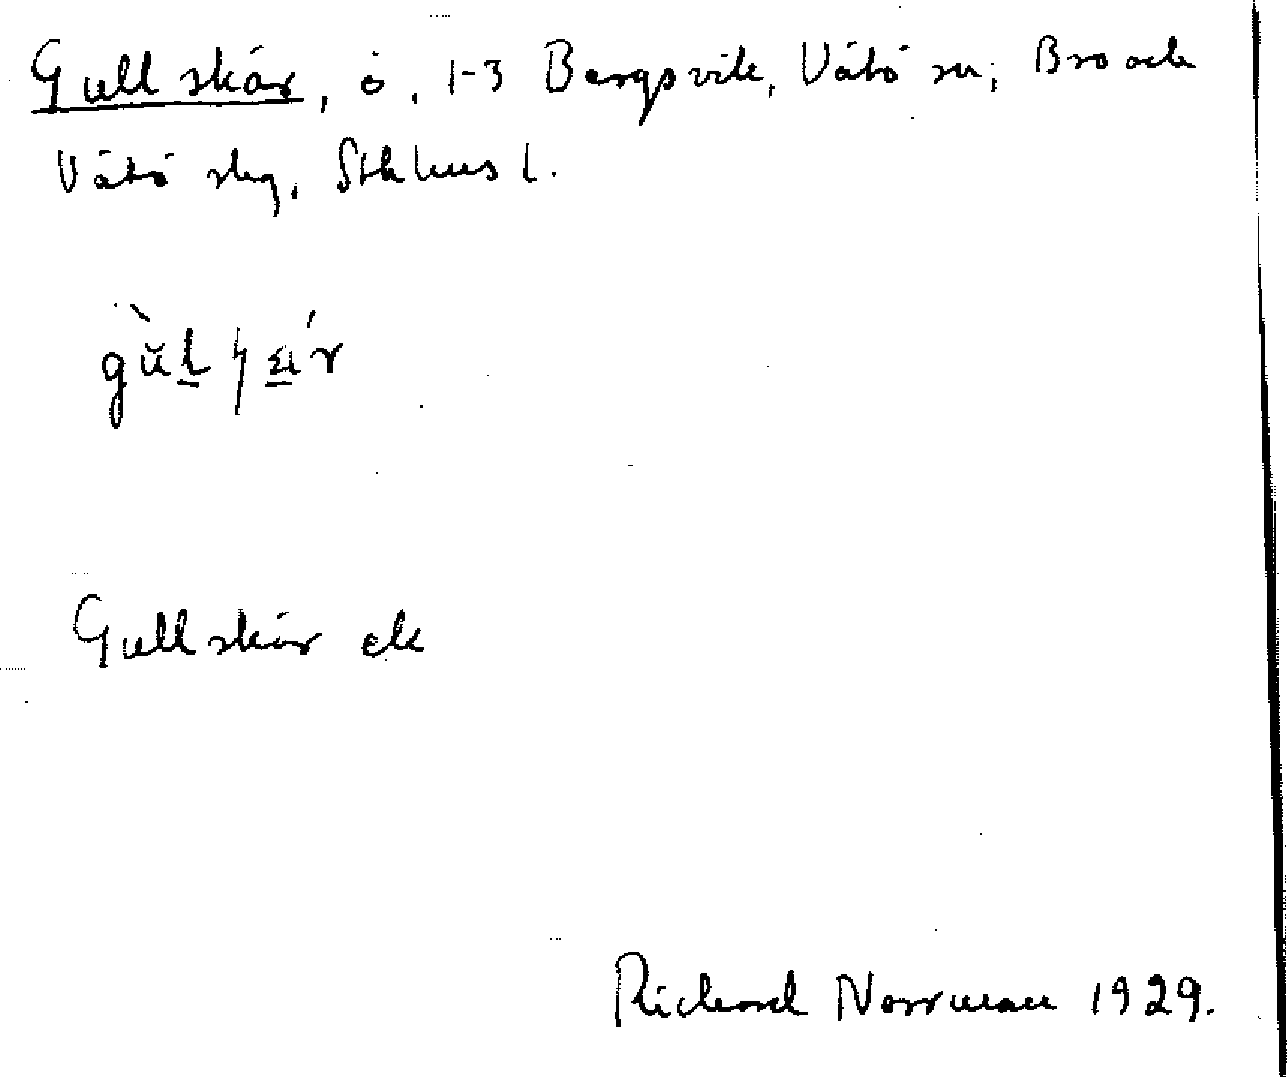 Gullskär, ö, 1-3 Bergsvik, Vätö sn; Bro och
Vätö skg, Sthlms l.
Gullskär ek
Richard Norrman 1929.